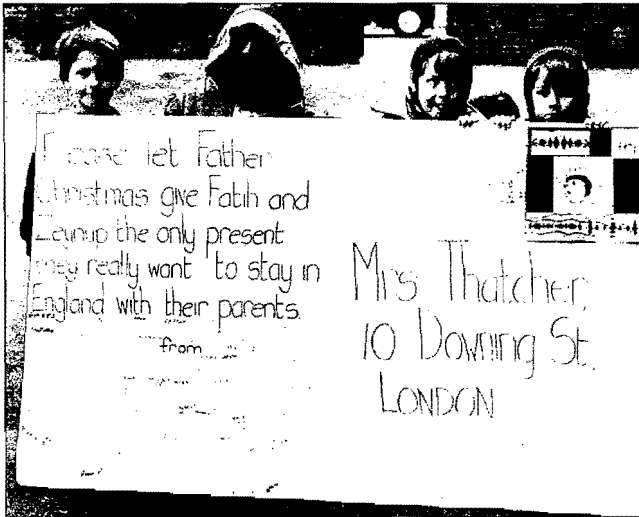 Please let Father
Christmas give Fatih and
Zeynup the only present
they really want to stay in
England with their parents.
from
Mrs Thatcher,
10 Downing St.
LONDON